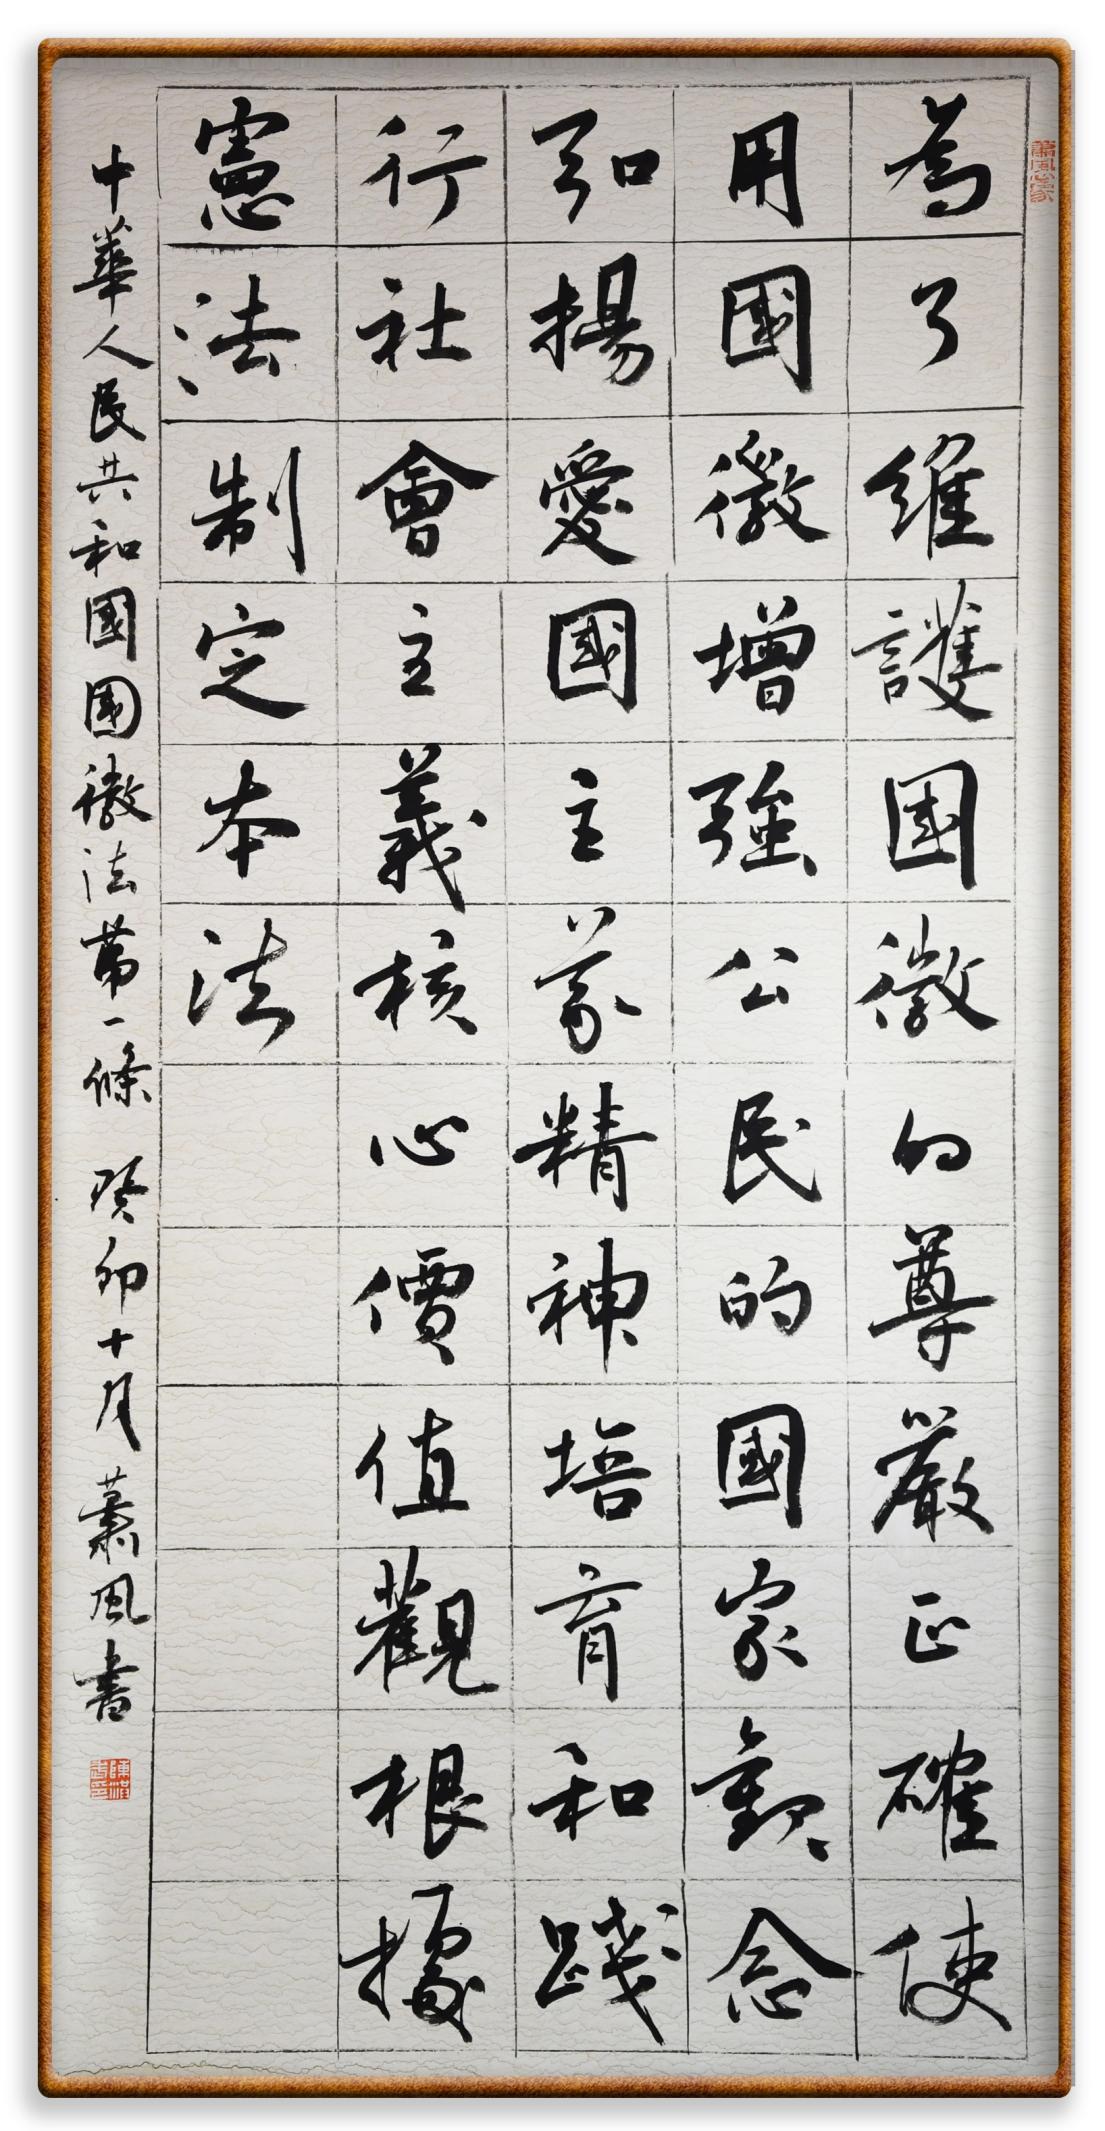 為了維護國徽的尊嚴正確使
用國徽增強公民的國家觀念
弘揚愛國主義精神培育和踐
行社會主義核心價值觀根據
憲法制定本法
中華人民共和國國徽法第一條 癸卯十月 蕭風書